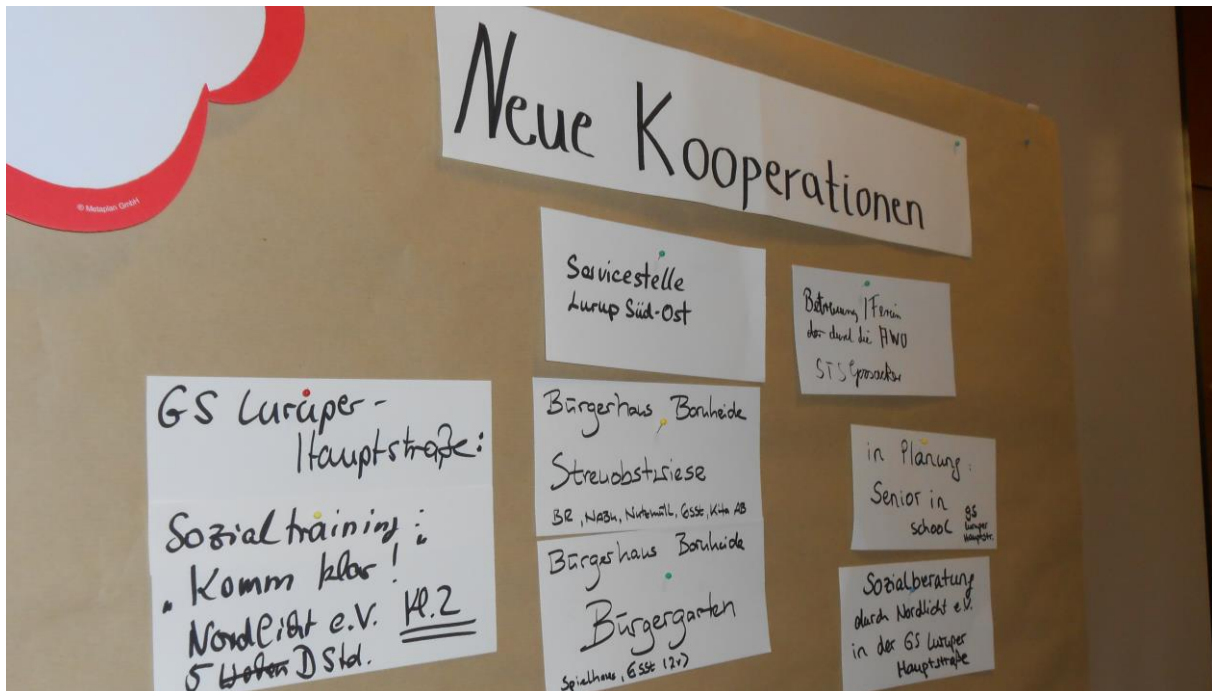 © Metaplan GmbH
Neue Kooperationen
Servicestelle
Lurup Süd-Ost
Betreuung / Ferien
durch die AWO
STS
GS Luruper-
Hauptstraße:
Sozialtraining:
"Komm klar!
Nordlicht e.V. Kl.2
5 DStd.
Bürgerhaus Bornheide
Streuobstwiese
BR, NABU, Nutzmüll, GSSt, Kita AB
Bürgerhaus Bornheide
Bürgergarten
Spielhaus, GSSt
in Planung:
Senior in
school GS
Luruper
Hauptstr.
Sozialberatung
durch Nordlicht e.V.
in der GS Luruper
Hauptstraße